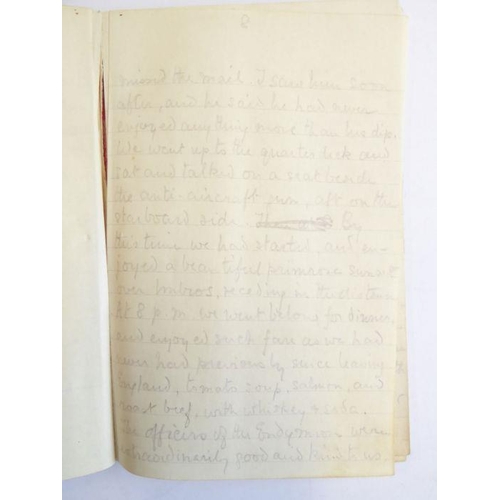 8
mind the mail. I saw him soon
after, and he said he had never
enjoyed anything more than his dip.
We went up to the quarter deck and
sat and talked on a seat beside
the anti-aircraft gun, aft on the
starboard side. By
this time we had started, and en-
joyed a beautiful panorama sunset
over Imbros, receding in the distance.
At 8 p.m. we went below for dinner
and enjoyed such fare as we had
never had previously since leaving
England, tomato soup, salmon, and
roast beef, with whiskey & soda.
The officers of the Endymion were
extraordinarily good and kind to us.